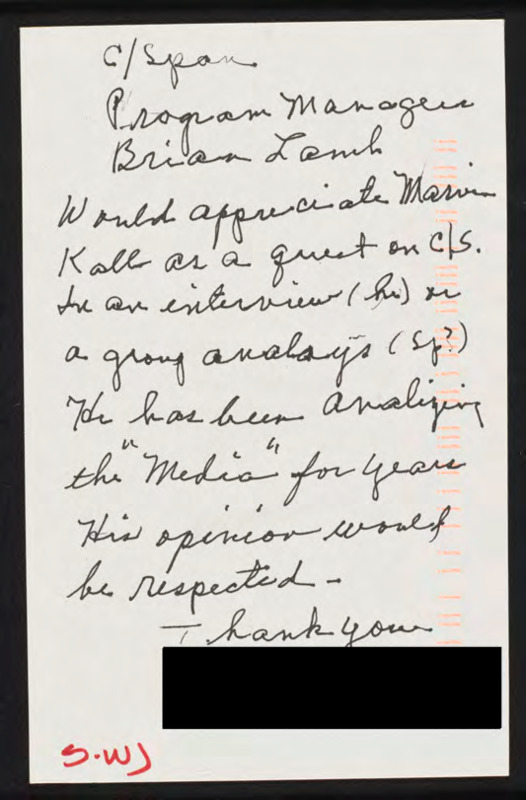 C/Span
Program Managers
Brian Lamb
Would appreciate Marvin
Kalb as a guest on C/S.
In an interview (hi) or
a group analsys (Sp?)
He has been Analizing
the "Media" for years
His opinion would
be respected -
Thank you
S.WJ